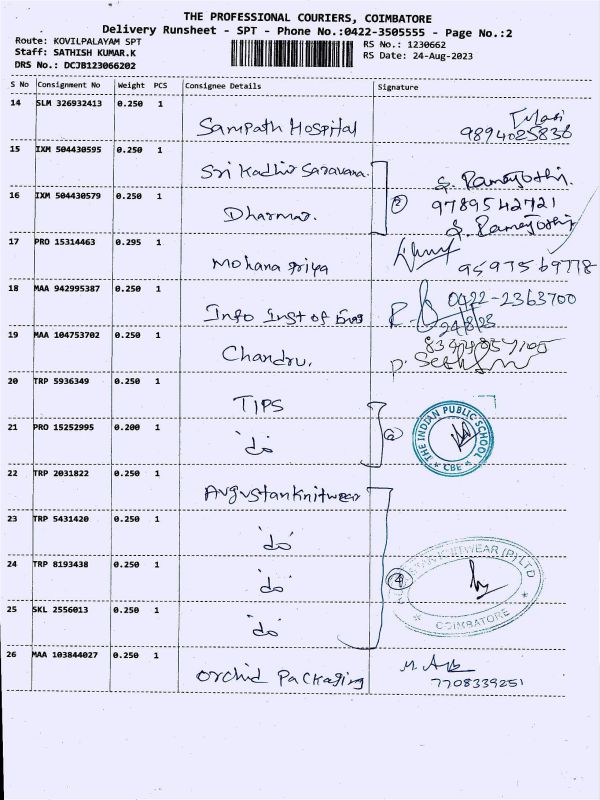 THE PROFESSIONAL COURIERS, COIMBATORE
Delivery Runsheet - SPT - Phone No.:0422-3505555 - Page No.:2
Route: KOVILPALAYAM SPT
RS No.: 1230662
Staff: SATHISH KUMAR.K
RS Date: 24-Aug-2023
DRS No.: DCJB123066202
S No Consignment No Weight PCS Consignee Details Signature
14 SLM 326932413 0.250 1
Sampath Hospital 9894025836
15 IXM 504430595 0.250 1
Sri Kadhir Saravana.
16 IXM 504430579 0.250 1
Dharmar. 2 9789542721
17 PRO 15314463 0.295 1
Mohana priya 9597569778
18 MAA 942995387 0.250 1
Info Inst of Engg 0422-2363700
24/8/23
19 MAA 104753702 0.250 1
Chandru.
20 TRP 5936349 0.250 1
TIPS
21 PRO 15252995 0.200 1
'do' 2 THE INDIAN PUBLIC SCHOOL
* CBE *
22 TRP 2031822 0.250 1
AugustanKnitwear
23 TRP 5431420 0.250 1
'do'
24 TRP 8193438 0.250 1
'do' 4 KNITWEAR (P) LTD
25 SKL 2556013 0.250 1
'do' * COIMBATORE *
26 MAA 103844027 0.250 1
Orchid Packaging 7708339251